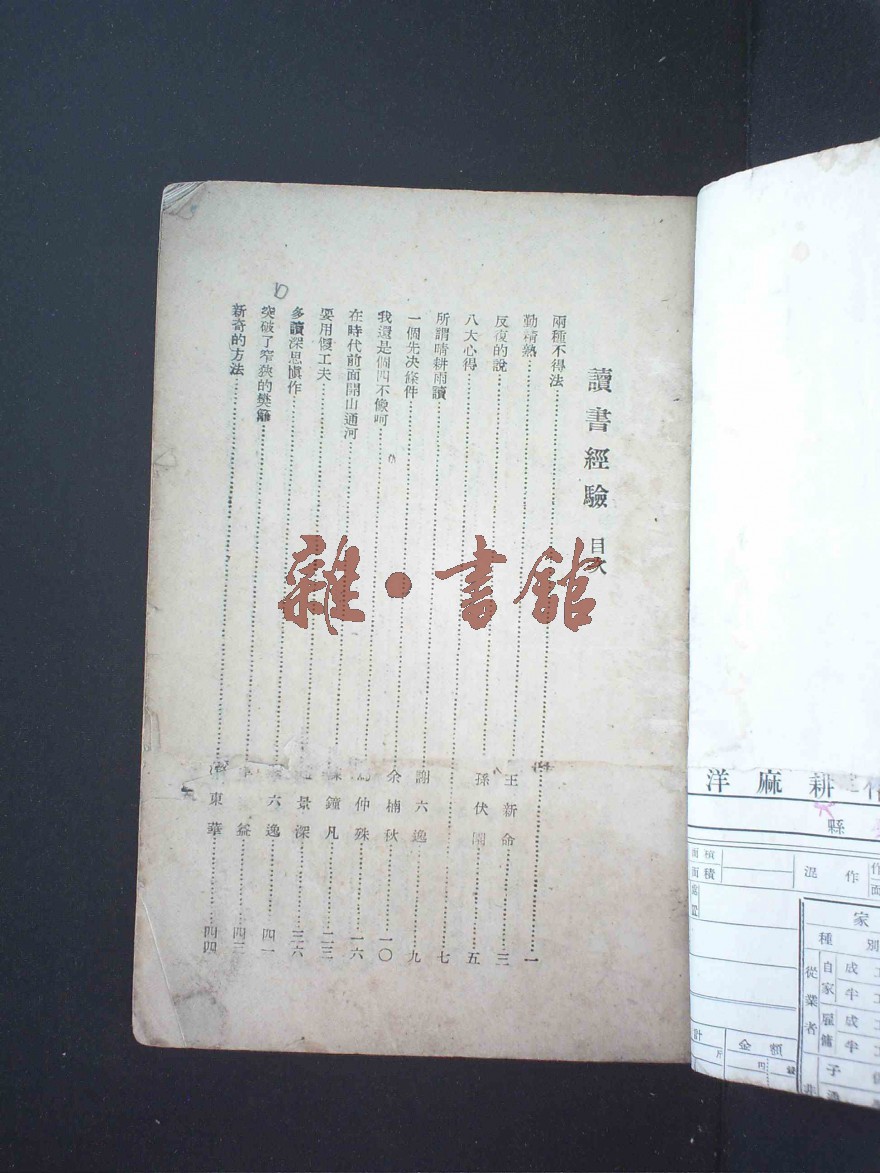 讀書經驗 目次
兩種不得法……一
勤精熟……王新命……三
反復的說……孫伏園……五
八大心得……七
所謂晴耕雨讀……謝六逸……九
一個先決條件……余楠秋……一〇
我還是個四不像呵……仲殊……一六
在時代前面開山通河……陳鐘凡……二三
要用傻工夫……景深……三六
多讀深思慎作……六逸……四一
突破了窄狹的樊籬……益……四二
新奇的方法……東華……四四
雜·書館
洋麻耕
縣
面積
混作
家
種別
從業者
自家
雇傭
成
半
成
半
子
計
金額
円
錢